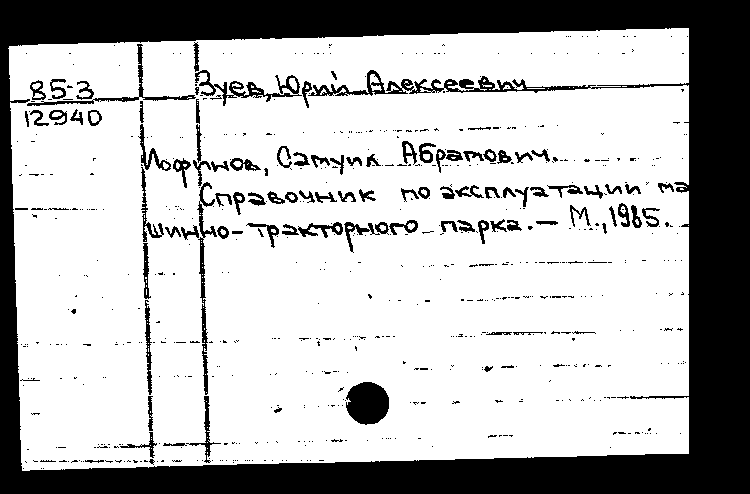 85-3
12940
Зуев, Юрий Алексеевич
Иофинов, Самуил Абрамович.
Справочник по эксплуатации ма
шинно-тракторного парка. – М., 1985.